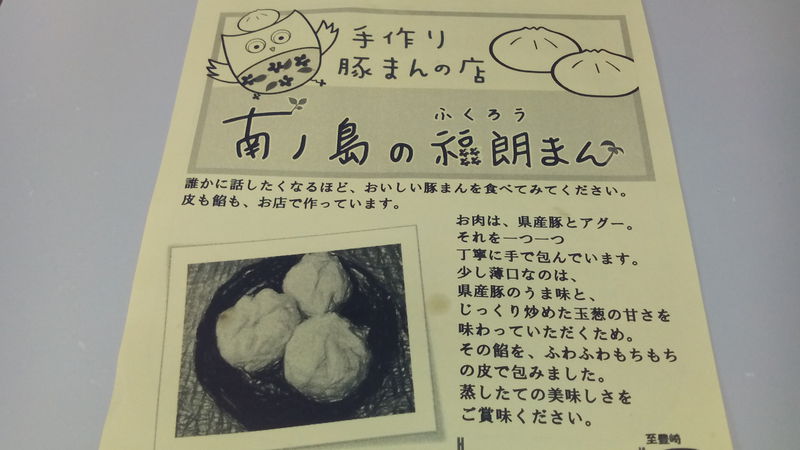 手作り
豚まんの店
ふくろう
南ノ島の福朗まん
誰かに話したくなるほど、おいしい豚まんを食べてみてください。
皮も餡も、お店で作っています。
お肉は、県産豚とアグー。
それを一つ一つ
丁寧に手で包んでいます。
少し薄口なのは、
県産豚のうま味と、
じっくり炒めた玉葱の甘さを
味わっていただくため。
その餡を、ふわふわもちもち
の皮で包みました。
蒸したての美味しさを
ご賞味ください。
至豊崎